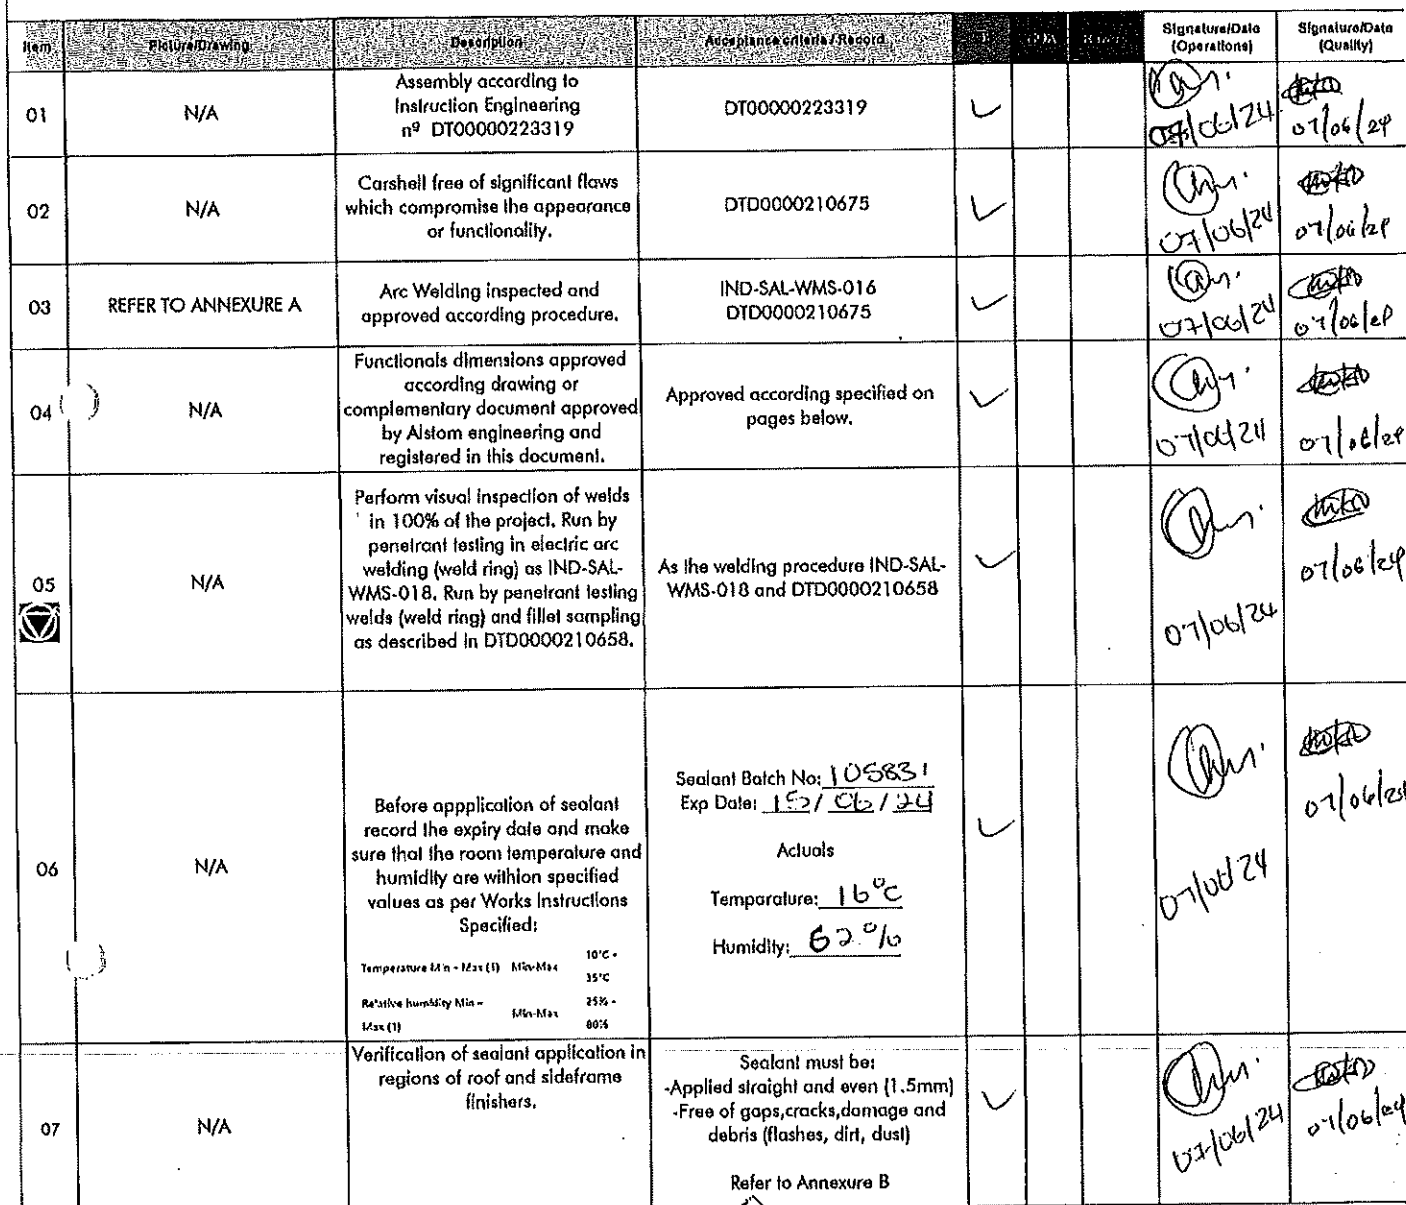 Item Picture/Drawing Description Acceptance criteria / Record Signature/Date (Operations) Signature/Date (Quality)
01
N/A
Assembly according to
Instruction Engineering
nº DT00000223319
DT00000223319
✓
07/06/24
07/06/24
02
N/A
Carshell free of significant flaws
which compromise the appearance
or functionality.
DTD0000210675
✓
07/06/24
07/06/24
03
REFER TO ANNEXURE A
Arc Welding inspected and
approved according procedure.
IND-SAL-WMS-016
DTD0000210675
✓
07/06/24
07/06/24
04
N/A
Functionals dimensions approved
according drawing or
complementary document approved
by Alstom engineering and
registered in this document.
Approved according specified on
pages below.
✓
07/06/24
07/06/24
05
N/A
Perform visual inspection of welds
in 100% of the project. Run by
penetrant testing in electric arc
welding (weld ring) as IND-SAL-
WMS-018. Run by penetrant testing
welds (weld ring) and fillet sampling
as described in DTD0000210658.
As the welding procedure IND-SAL-
WMS-018 and DTD0000210658
✓
07/06/24
07/06/24
06
N/A
Before appplication of sealant
record the expiry date and make
sure that the room temperature and
humidity are withion specified
values as per Works Instructions
Specified:
Temperature Min - Max (1) Min-Max 10°C - 35°C
Relative humidity Min - Max (1) Min-Max 25% - 80%
Sealant Batch No: 105831
Exp Date: 15/06/24
Actuals
Temparature: 16°C
Humidity: 62%
✓
07/06/24
07/06/24
07
N/A
Verification of sealant application in
regions of roof and sideframe
finishers.
Sealant must be:
-Applied straight and even (1.5mm)
-Free of gaps,cracks,damage and
debris (flashes, dirt, dust)
Refer to Annexure B
✓
07/06/24
07/06/24